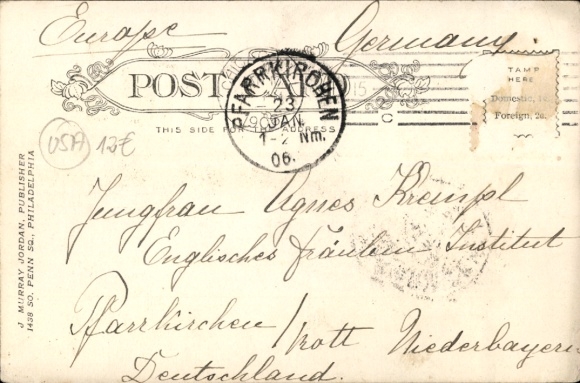 Europe Germany
POST CARD
TAMP
HERE
Domestic, 1c.
Foreign, 2c.
PFARRKIRCHEN
23
JAN.
1-2 Nm.
06.
15
THIS SIDE FOR THE ADDRESS
USA 12€
J. MURRAY JORDAN, PUBLISHER
1438 SO. PENN SQ., PHILADELPHIA
Jungfrau Agnes Krempl
Englisches Fräulein Institut
Pfarrkirchen / Rott Niederbayern
Deutschland.